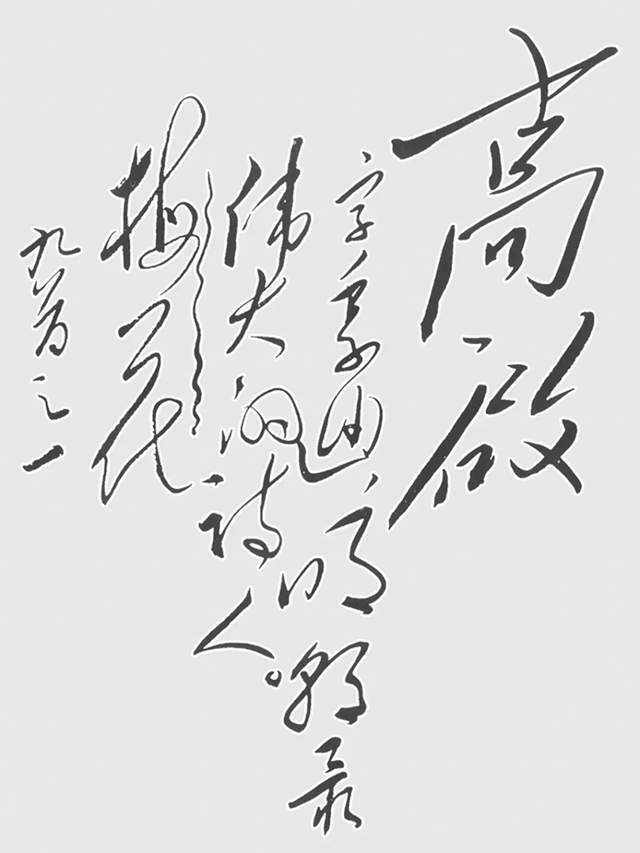 高启
字季迪,明朝最
伟大的诗人。
梅花
九首之一